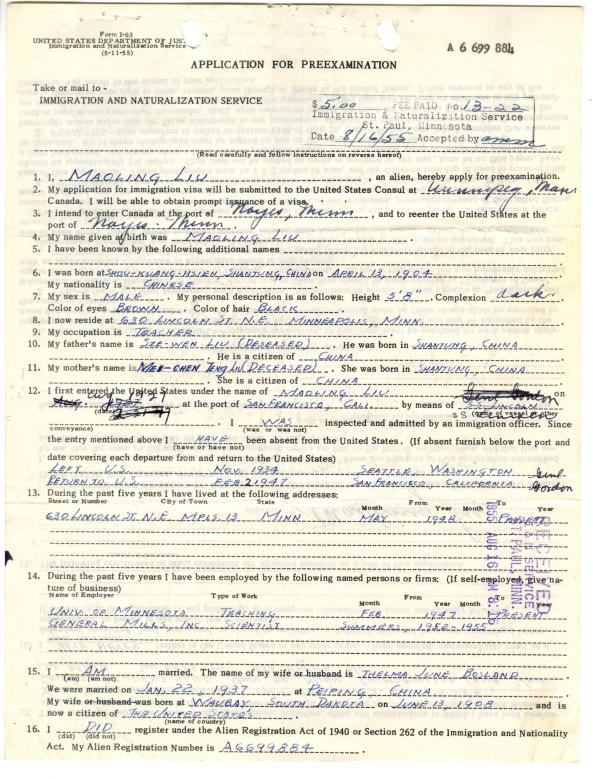 Form I-63
UNITED STATES DEPARTMENT OF JUST
Immigration and Naturalization Service
(5-11-55)
A 6 699 884
APPLICATION FOR PREEXAMINATION
Take or mail to -
IMMIGRATION AND NATURALIZATION SERVICE
$5.00 FEE PAID No. 13-22
Immigration & Naturalization Service
St. Paul, Minnesota
Date 8/16/55 Accepted by
(Read carefully and follow instructions on reverse hereof)
1. I, MAOLING LIU, an alien, hereby apply for preexamination.
2. My application for immigration visa will be submitted to the United States Consul at Winnipeg, Man
Canada. I will be able to obtain prompt issuance of a visa.
3. I intend to enter Canada at the port of Noyes, Minn, and to reenter the United States at the
port of Noyes Minn.
4. My name given at birth was MAOLING LIU
5. I have been known by the following additional names
6. I was born at SHOU-KUANG-HSIEN, SHANTUNG, CHINA on APRIL 13, 1904
My nationality is CHINESE
7. My sex is MALE. My personal description is as follows: Height 5'8" Complexion dark.
Color of eyes BROWN. Color of hair BLACK
8. I now reside at 630 LINCOLN ST. N.E. MINNEAPOLIS, MINN.
9. My occupation is TEACHER
10. My father's name is SZE-WEN LIU (DESEASED). He was born in SHANTUNG, CHINA
He is a citizen of CHINA
11. My mother's name is CHEN TENG LIU (DECEASED). She was born in SHANTUNG, CHINA
She is a citizen of CHINA
12. I first entered the United States under the name of MAOLING LIU on
(date) at the port of SAN FRANCISCO, CALI. by means of SS LINCOLN
(conveyance) . I WAS inspected and admitted by an immigration officer. Since
(was or was not)
the entry mentioned above I HAVE been absent from the United States. (If absent furnish below the port and
(have or have not)
date covering each departure from and return to the United States)
LEFT U.S. NOV. 1934 SEATTLE, WASHINGTON
RETURN TO U.S. FEB. 2 1947 SAN FRANCISCO, CALIFORNIA Genl Gordon
13. During the past five years I have lived at the following addresses:
Street or Number City of Town State From To
Month Year Month Year
630 LINCOLN ST. N.E. MPLS. 13 MINN MAY 1948 PRESENT
RECEIVED
I & N SERVICE
ST. PAUL, MINN.
1955 AUG 16
14. During the past five years I have been employed by the following named persons or firms: (If self-employed, give na-
ture of business)
Name of Employer Type of Work From To
Month Year Month Year
UNIV. OF MINNESOTA TEACHING FEB 1947 PRESENT
GENERAL MILLS, INC SCIENTIST SUMMERS, 1952-1955
15. I AM married. The name of my wife or husband is THELMA JUNE BOSLAND
(am) (am not)
We were married on JAN. 22, 1937 at PEIPING, CHINA
My wife or husband was born at WAUBAY SOUTH DAKOTA on JUNE 13, 1908 and is
now a citizen of THE UNITED STATES
(name of country)
16. I DID register under the Alien Registration Act of 1940 or Section 262 of the Immigration and Nationality
(did) (did not)
Act. My Alien Registration Number is A6699884